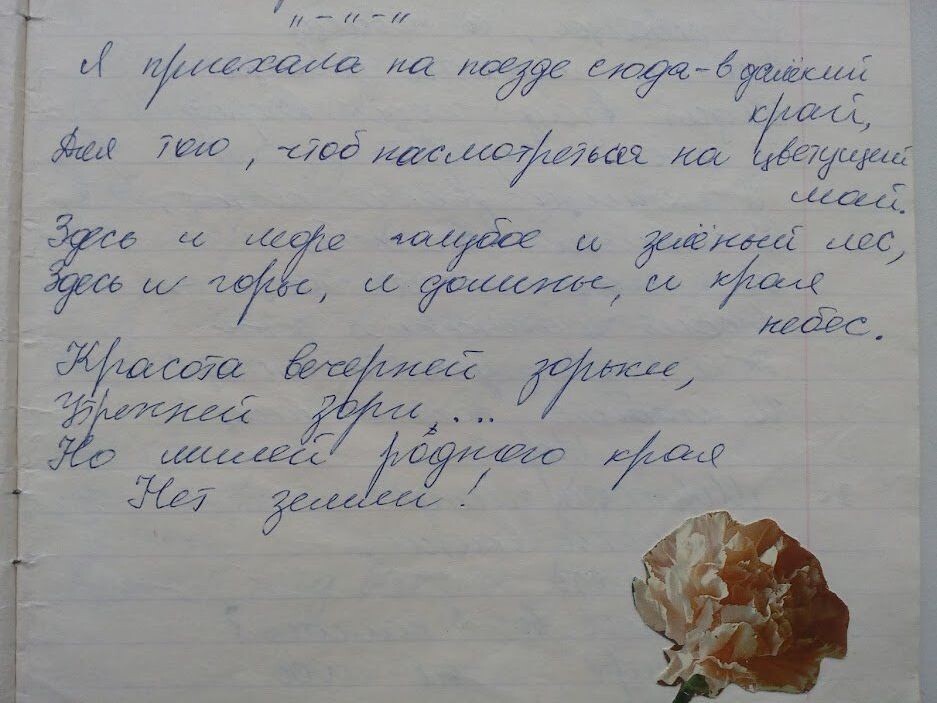 "-"-"
Я приехала на поезде сюда - в далёкий
край,
Для того, чтоб насмотреться на цветущий
май.
Здесь и море голубое и зелёный лес,
Здесь и горы, и долины, и края
небес.
Красота вечерней зорьки,
Утренней зари...
Но милей родного края
Нет земли!